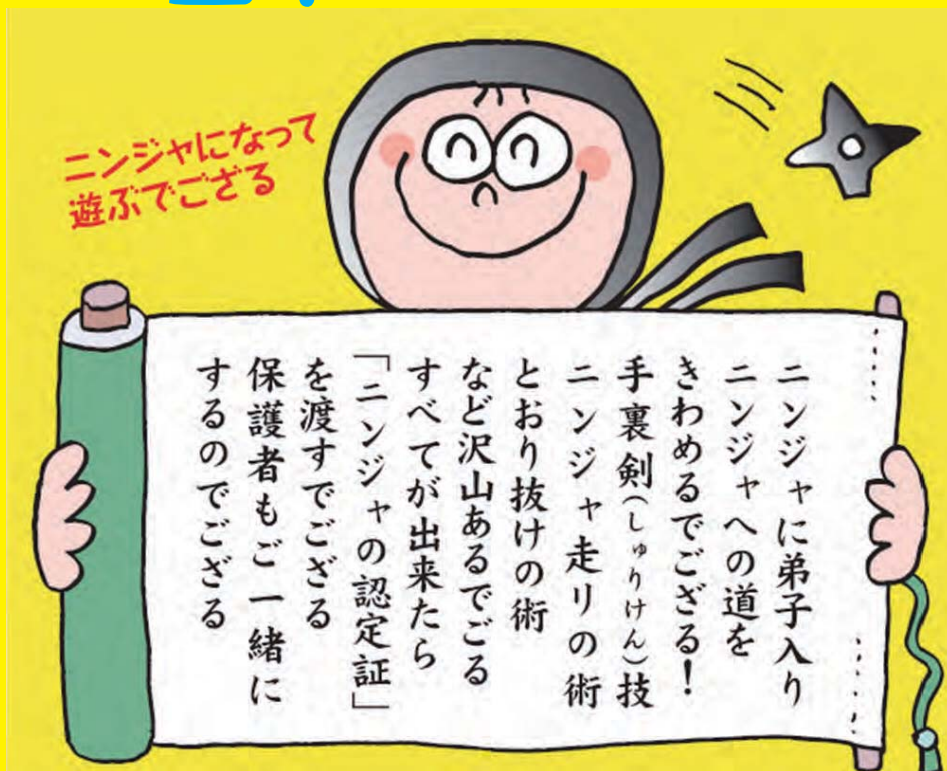 ニンジャになって
遊ぶでござる
ニンジャに弟子入り
ニンジャへの道を
きわめるでござる!
手裏剣(しゅりけん)技
ニンジャ走りの術
とおり抜けの術
など沢山あるでごる
すべてが出来たら
「ニンジャの認定証」
を渡すでござる
保護者もご一緒に
するのでござる